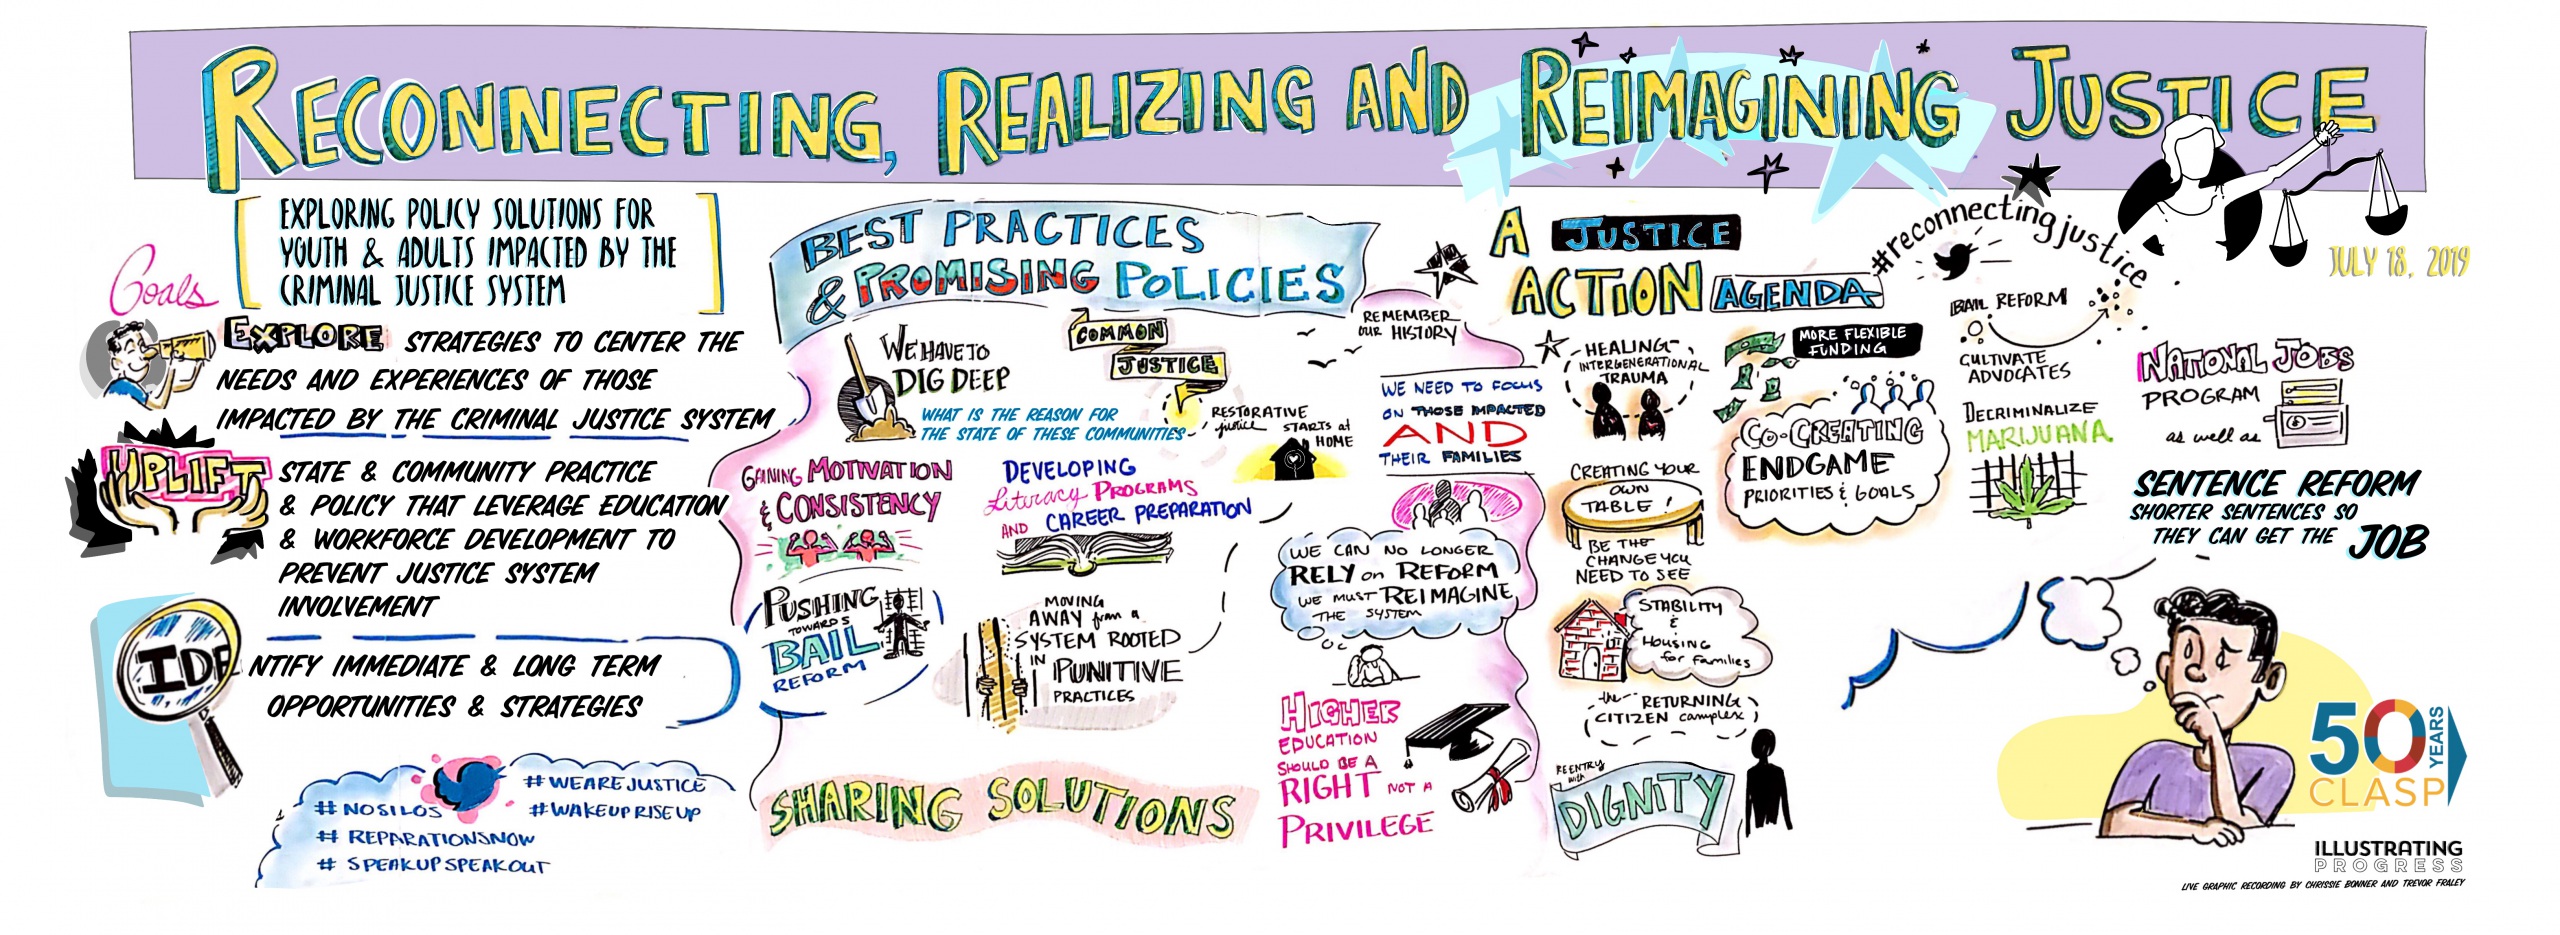 RECONNECTING, REALIZING AND REIMAGINING JUSTICE
EXPLORING POLICY SOLUTIONS FOR
YOUTH & ADULTS IMPACTED BY THE
CRIMINAL JUSTICE SYSTEM
Goals
EXPLORE STRATEGIES TO CENTER THE
NEEDS AND EXPERIENCES OF THOSE
IMPACTED BY THE CRIMINAL JUSTICE SYSTEM
UPLIFT STATE & COMMUNITY PRACTICE
& POLICY THAT LEVERAGE EDUCATION
& WORKFORCE DEVELOPMENT TO
PREVENT JUSTICE SYSTEM
INVOLVEMENT
IDENTIFY IMMEDIATE & LONG TERM
OPPORTUNITIES & STRATEGIES
#WEAREJUSTICE
#NOSILOS
#WAKEUPRISEUP
#REPARATIONSNOW
#SPEAKUPSPEAKOUT
BEST PRACTICES
& PROMISING POLICIES
WE HAVE TO
DIG DEEP
WHAT IS THE REASON FOR
THE STATE OF THESE COMMUNITIES
COMMON
JUSTICE
RESTORATIVE
justice STARTS at
HOME
GAINING MOTIVATION
& CONSISTENCY
DEVELOPING
Literacy PROGRAMS
AND CAREER PREPARATION
PUSHING
TOWARDS
BAIL
REFORM
MOVING
AWAY from a
SYSTEM ROOTED
IN PUNITIVE
PRACTICES
SHARING SOLUTIONS
REMEMBER
OUR HISTORY
WE NEED TO FOCUS
ON THOSE IMPACTED
AND
THEIR FAMILIES
WE CAN NO LONGER
RELY on REFORM
WE MUST REIMAGINE
THE SYSTEM
HIGHER
EDUCATION
SHOULD BE A
RIGHT NOT A
PRIVILEGE
A JUSTICE
ACTION AGENDA
#reconnectingjustice
HEALING
INTERGENERATIONAL
TRAUMA
CREATING YOUR
OWN
TABLE!
BE THE
CHANGE YOU
NEED TO SEE
STABILITY
&
HOUSING
for families
the RETURNING
CITIZEN complex
REENTRY
with
DIGNITY
MORE FLEXIBLE
FUNDING
CO-CREATING
ENDGAME
PRIORITIES & GOALS
BAIL REFORM
CULTIVATE
ADVOCATES
DECRIMINALIZE
MARIJUANA
JULY 18, 2019
NATIONAL JOBS
PROGRAM
as well as
SENTENCE REFORM
SHORTER SENTENCES SO
THEY CAN GET THE JOB
50 YEARS
CLASP
ILLUSTRATING
PROGRESS
LIVE GRAPHIC RECORDING BY CHRISSIE BONNER AND TREVOR FRALEY